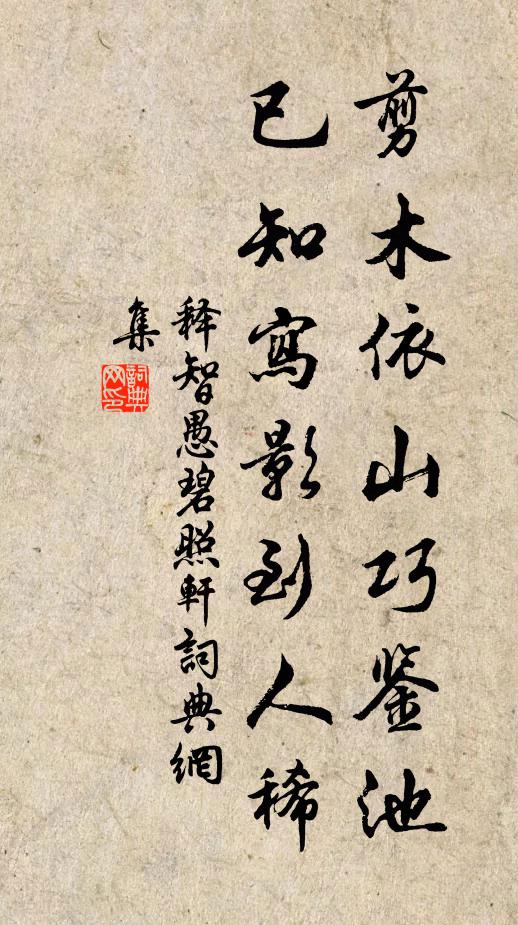 剪木依山巧鑒池
已知寫影到人稀
释智愚碧照軒詞典網
集
詞典
网印